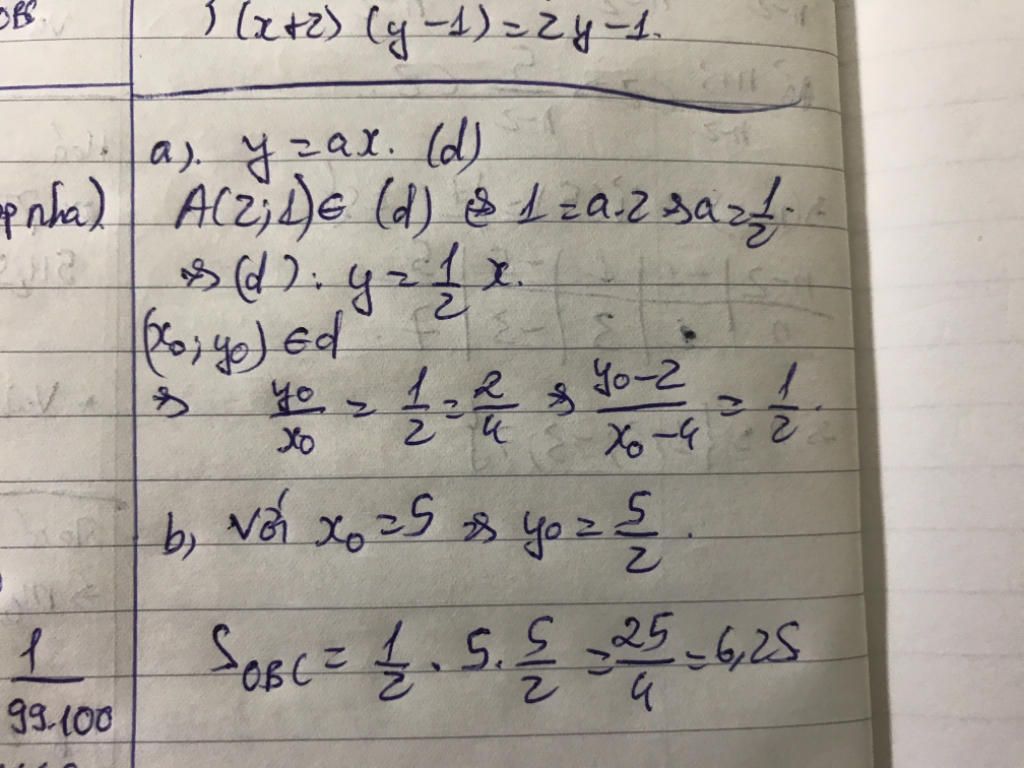 OBS
(x+2) (y-1) = 2y-1.
a). y = ax. (d)
p nha)
A(2;1) ∈ (d) ⇔ 1 = a.2 ⇒ a = 1/2.
⇒ (d): y = 1/2 x.
(x₀; y₀) ∈ d
⇒ y₀/x₀ = 1/2 = 2/4 ⇒ (y₀-2)/(x₀-4) = 1/2.
b, với x₀ = 5 ⇒ y₀ = 5/2.
S_OBC = 1/2 . 5 . 5/2 = 25/4 = 6,25
1/99.100